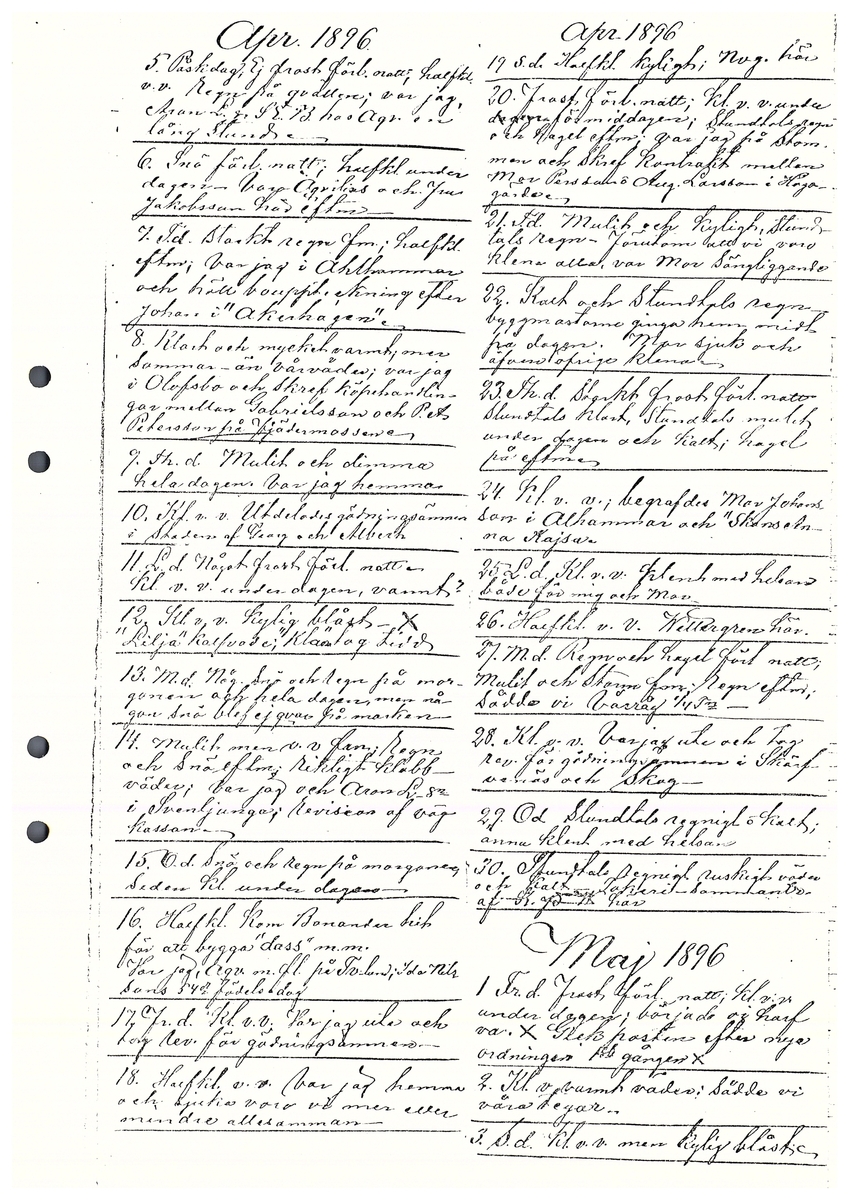 Apr. 1896
5. Påskdag, Ej frost förl. natt; halfkl.
v.v. Regn på qvällen; var jag,
Aron L. g. hos Agr. en
lång stund
6. Snö förl. natt; halfkl under
dagen — var Agrilius och Fru
Jakobsson här eftm
7. T.d. Starkt regn fm; halfkl.
eftm; var jag i Ahlhammar
och höll bouppteckning efter
Johan i "Åkerhagen"
8. Klart och mycket varmt, mer
sommar — än vårväder; var jag
i Olofsbo och skref köpehandlin-
gar mellan Gabrielsson och P.A.
Petersson på Fjädermossen
9. Th. d. Mulit och dimma
hela dagen. Var jag hemma
10. Kf. v. v. Utdelades gödningsämnen
i Staden af Georg och Albert
11. L.d. Något frost förl. natt
kl. v. v. under dagen, varmt?
12. Kl. v. v. kylig blåst — X
"Lilja" kalfvade; "Klara" tog tidd
13. M.d. Någ. snö och regn på mor-
gonen och hela dagen, men nå-
gon snö blef ej qvar på marken
14. Mulit men v. v fm; Regn
och snö eftm; Rikligt klabb-
väder; var jag och Aron
i Svenljunga; revision af väg
kassan
15. O.d. snö och regn på morgonen
sedan kl. under dagen
16. Halfkl. Kom Bonander hit
för att bygga "dass" m.m.
Var jag, Agr. m.fl. på; Ida Nils
sons 34de födelsedag
17. Fr. d. Kl. v.v; Var jag ute och
tog rev. för gödningsämnen
18. Halfkl. v. v. var jag hemma
och sjuka voro vi mer eller
mindre allesamman
Apr. 1896
19 S.d. Halfkl kyligh; Nvg. här
20. Frost förl. natt; kl. v. v. under
förmiddagen; stundtals regn
och hagel eftm; var jag på Stom-
men och skref kontrakt mellan
Mor Persson o Aug. Larsson i Höga-
gärde
21. T.d. Mulit och kyligh, stund-
tals regn — Förutom att vi voro
klena alla, var Mor sängliggande
22. Kallt och stundtals regn
byggmästarne gingo hem midt
på dagen. Mor sjuk och
äfven öfrige klena
23. Th.d. Starkt frost förl. natt
Stundtals klart, stundtals mulit
under dagen och kalt; hagel
på eftm
24. Kl. v. v.; begrafdes Mor Johans
son i Alhammar och "Skans
na Kajsa
25 L.d. Kl. v. v. klent med helsan
både för mig och Mor
26. Halfkl. v. v. Wettergren här.
27. M.d. Regn och hagel förl natt;
Mulit och storm fm; regn eftm;
Sådde vi Vårråg 1/4 Tna
28. Kl. v. v. Var jag ute och tog
rev. för gödningsämnen i Skärf
venäs och Skog
29. Od Stundtals regnigt o kalt;
änna klent med helsan
30. Stundtals regnigt ruskigh väder
och kalt — sammantr.
af här
Maj 1896
1 Fr. d. Frost förl. natt; kl. v. v
under dagen; började vi harf
va. X Gick posten efter nya
ordningen 1sta gången X
2. Kl v varmt väder; Sådde vi
våra tegar
3. S.d. kl. v. v. men kylig blåst